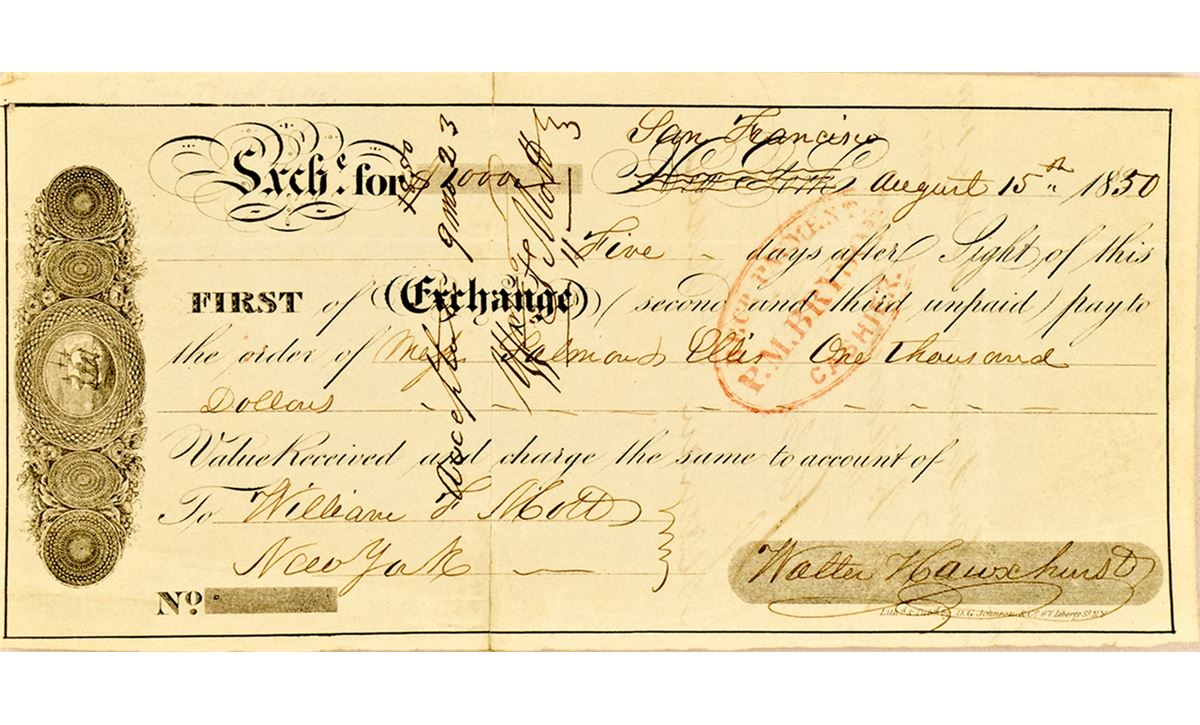 San Francisco
Exche. for $1000
New York August 15th 1850
Five days after Sight of this
FIRST of (Exchange) (second and third unpaid) pay to
the order of Messrs Salmon & Ellis One thousand
Dollars
Value Received and charge the same to account of
To William F Mott
New York
Walter Hawxhurst
No.
D.G. Johnson, & Co. 67 Liberty St. N.Y.
Accepted 9 mo 23
RECT PAYMENT
P.M. BRYDA
CASHIER.